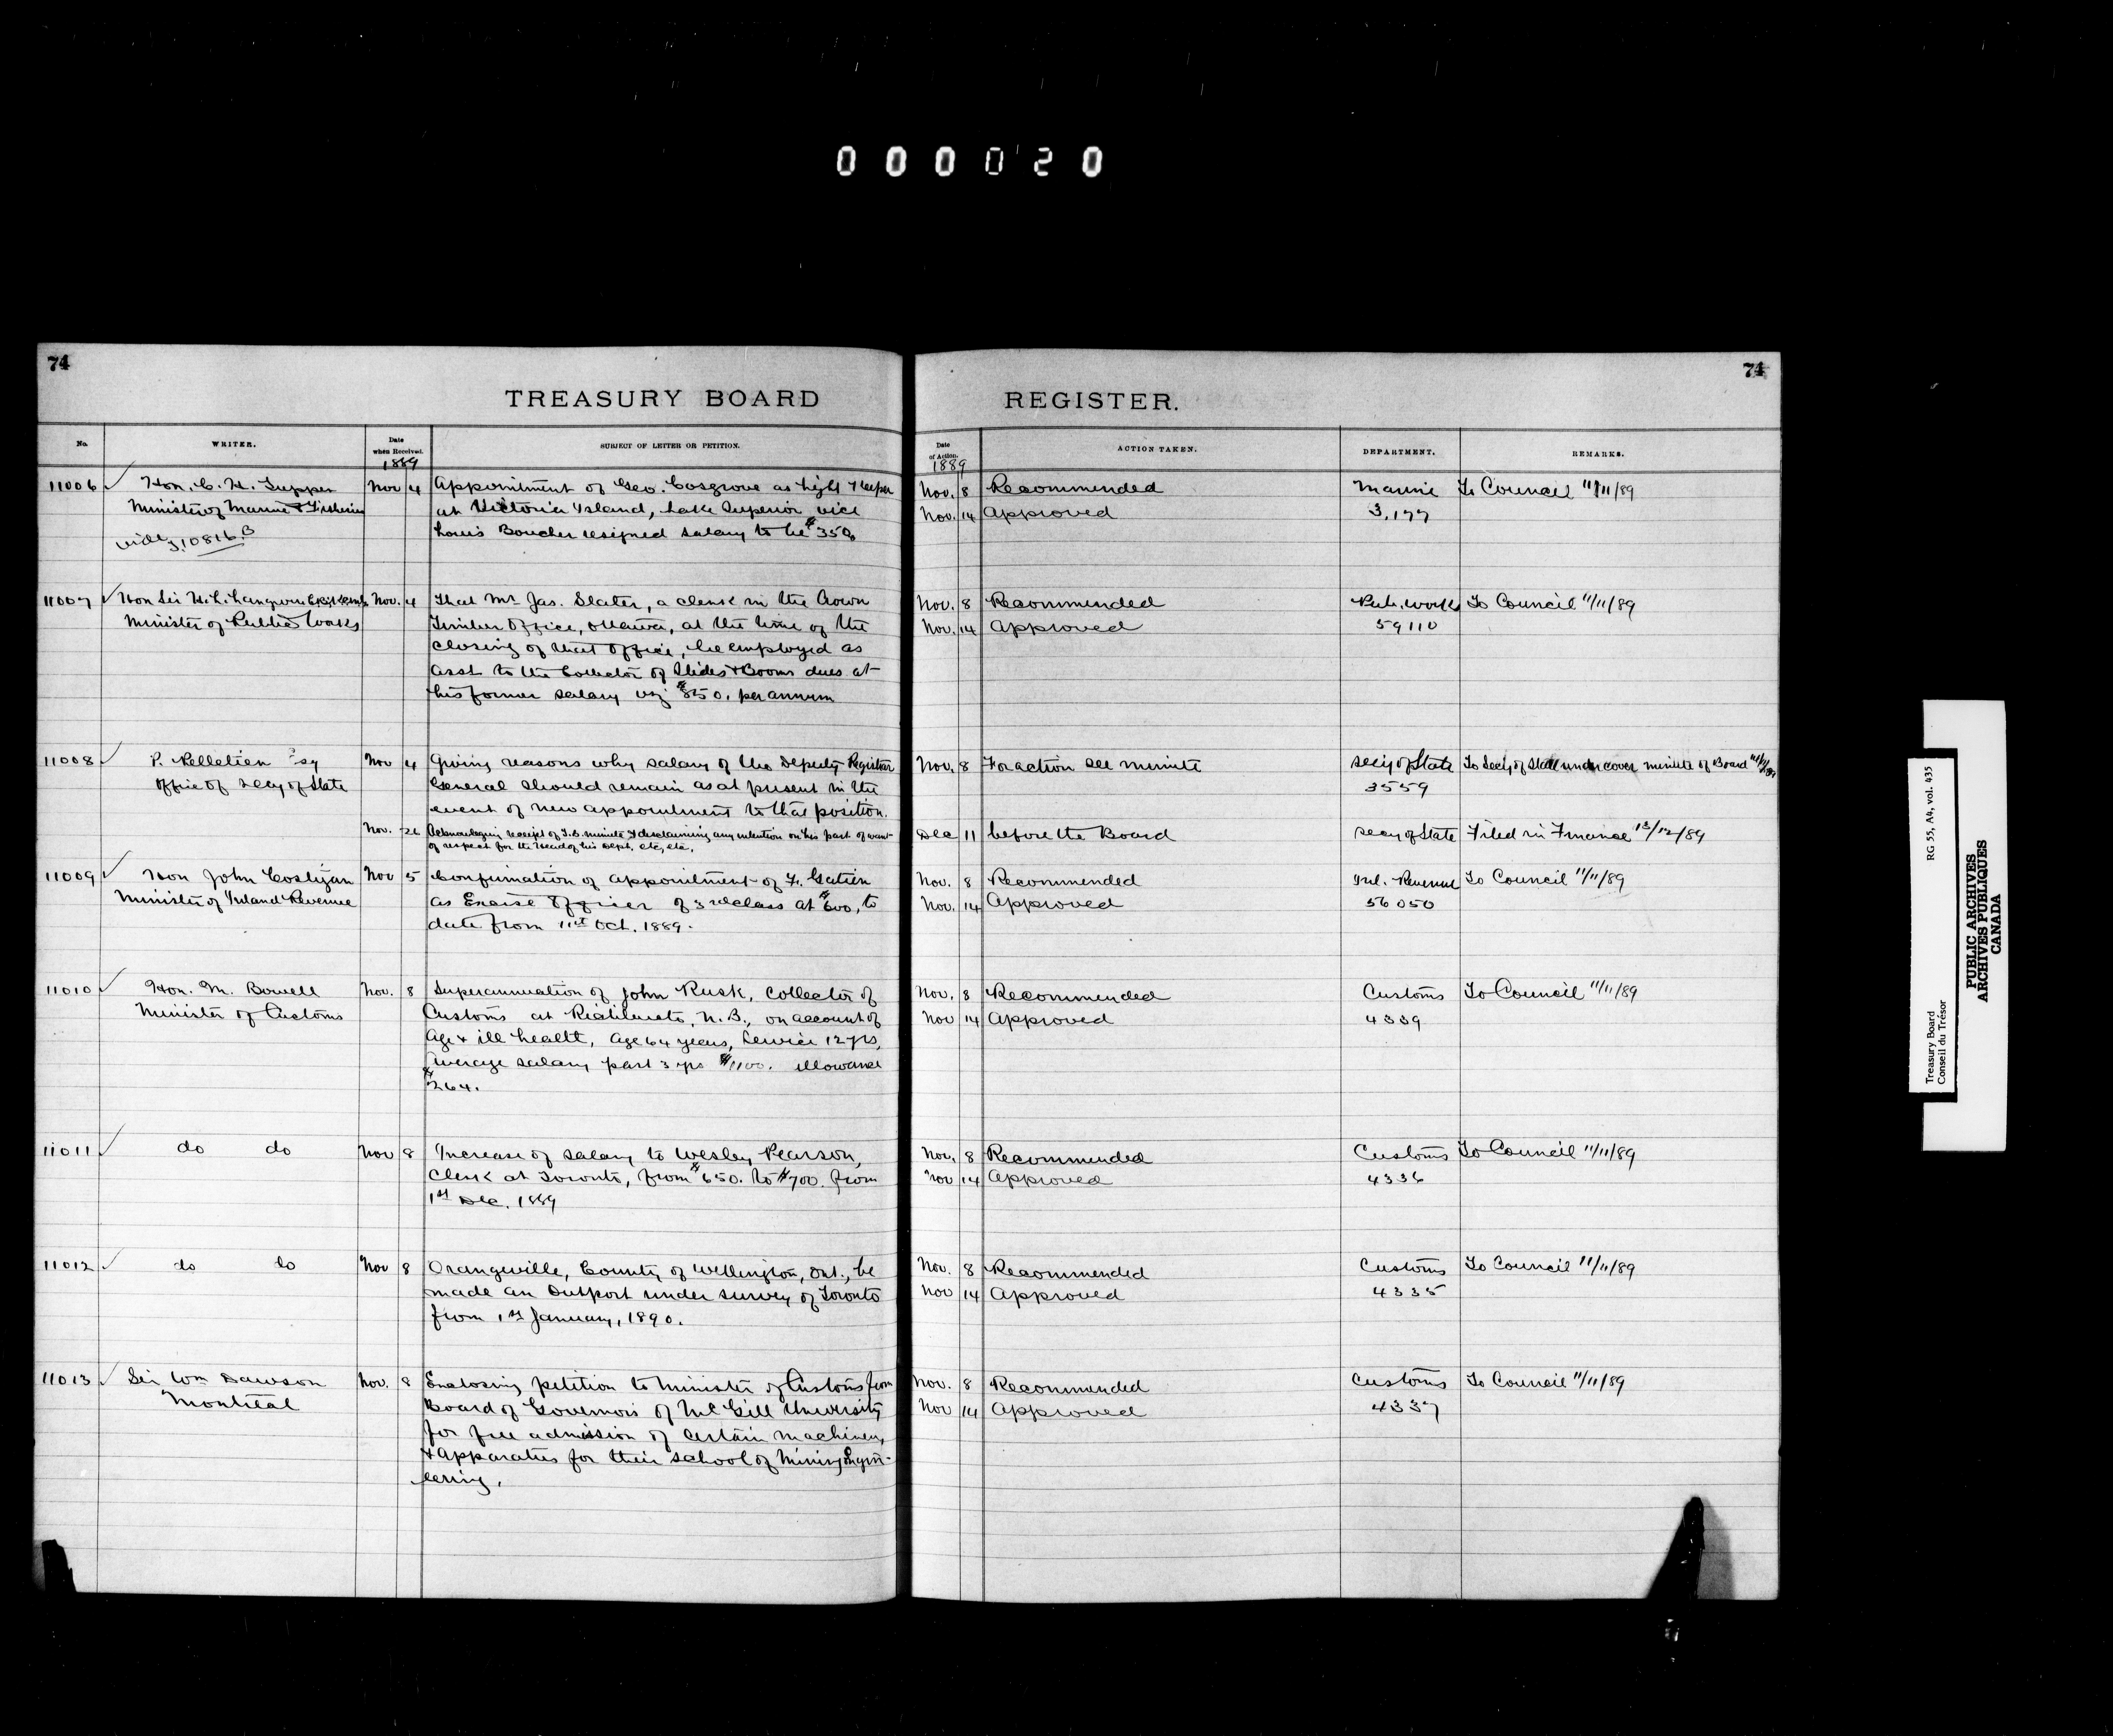 000020
74
74
TREASURY BOARD REGISTER.
No.
WRITER.
Date when Received.
SUBJECT OF LETTER OR PETITION.
Date of Action.
ACTION TAKEN.
DEPARTMENT.
REMARKS.
1889
1889
11006 Hon. C. H. Tupper Nov 4 Appointment of Geo. Cosgrove as Light Keeper Nov. 8 Recommended Marine To Council 11/11/89
Minister of Marine & Fisheries at Victoria Island, Lake Superior vice Nov. 14 Approved 3,177
10816 B Louis Boucher resigned salary to be $350
11007 Hon Sir H. L. Langevin Nov. 4 That Mr Jas. Slater, a clerk in the Crown Nov. 8 Recommended Pub. Works To Council 11/11/89
Minister of Public Works Timber Office, Ottawa, at the time of the Nov. 14 Approved 59110
closing of that office, be employed as
Asst to the Collector of Slides & Booms dues at
his former salary viz $850. per annum
11008 P. Pelletier Esq Nov 4 Giving reasons why salary of the Deputy Registrar Nov. 8 For action see minute Secy of State To Secy of State under cover minute of Board
Office of Secy of State General should remain as at present in the 3559
event of new appointment to that position.
Nov. 26 Acknowledging receipt of T.B. minute & disclaiming any intention on his part of want Dec 11 before the Board Secy of State Filed in Finance 13/12/89
of respect for the Head of his Dept. etc, etc.
11009 Hon John Costigan Nov 5 Confirmation of appointment of F. Gatien Nov. 8 Recommended Inl. Revenue To Council 11/11/89
Minister of Inland Revenue as Excise Officer of 3rd class at $600, to Nov. 14 Approved 56050
date from 11st Oct. 1889.
11010 Hon. M. Bowell Nov. 8 Superannuation of John Rusk, Collector of Nov. 8 Recommended Customs To Council 11/11/89
Minister of Customs Customs at Richibucto, N.B., on account of Nov 14 Approved 4339
age & ill health, age 64 years, Service 12 yrs,
Average salary past 3 yrs $1100. allowance
$264.
11011 do do Nov 8 Increase of salary to Wesley Pearson, Nov. 8 Recommended Customs To Council 11/11/89
Clerk at Toronto, from $650. to $700. from Nov 14 Approved 4336
1st Dec. 1889
11012 do do Nov 8 Orangeville, County of Wellington, Ont., be Nov. 8 Recommended Customs To Council 11/11/89
made an Outport under survey of Toronto Nov 14 Approved 4335
from 1st January, 1890.
11013 Sir Wm Dawson Nov. 8 Enclosing petition to Minister of Customs from Nov. 8 Recommended Customs To Council 11/11/89
Montreal Board of Governors of McGill University Nov 14 Approved 4337
for free admission of certain machinery
& apparatus for their school of Mining Engin-
eering.
Treasury Board
Conseil du Trésor
RG 55, A4, vol. 435
PUBLIC ARCHIVES
ARCHIVES PUBLIQUES
CANADA